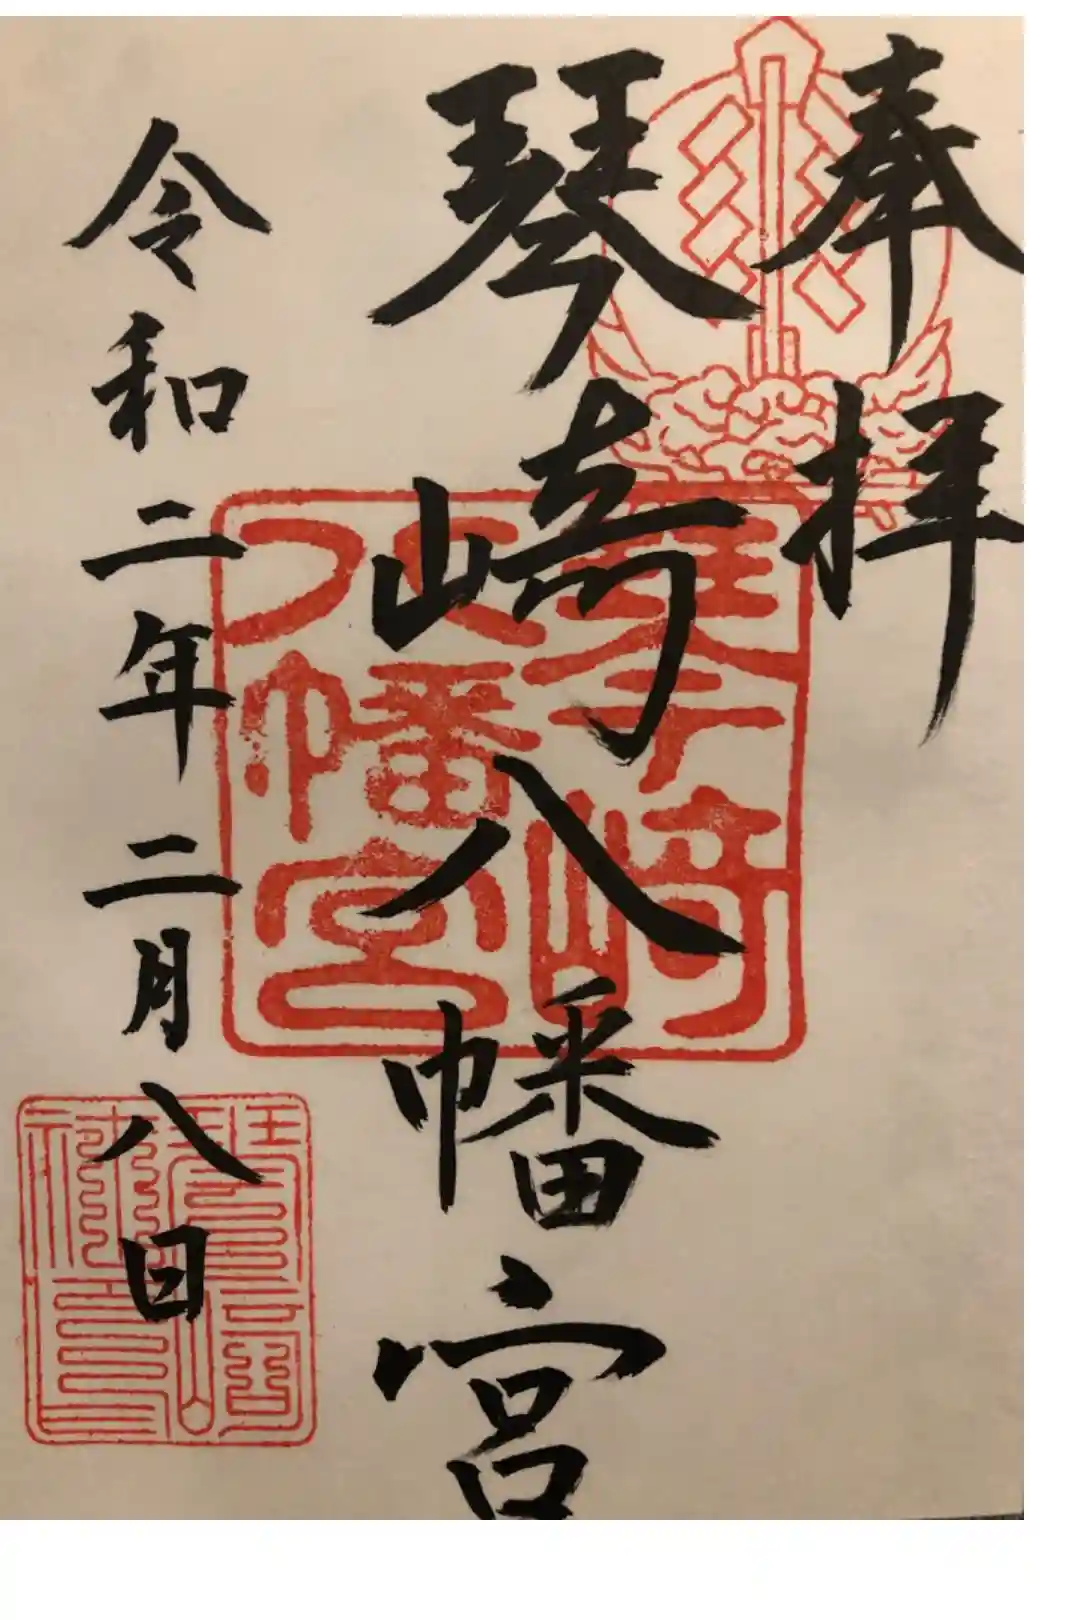 奉拝
琴崎八幡宮
令和二年二月八日
琴崎
八幡宮